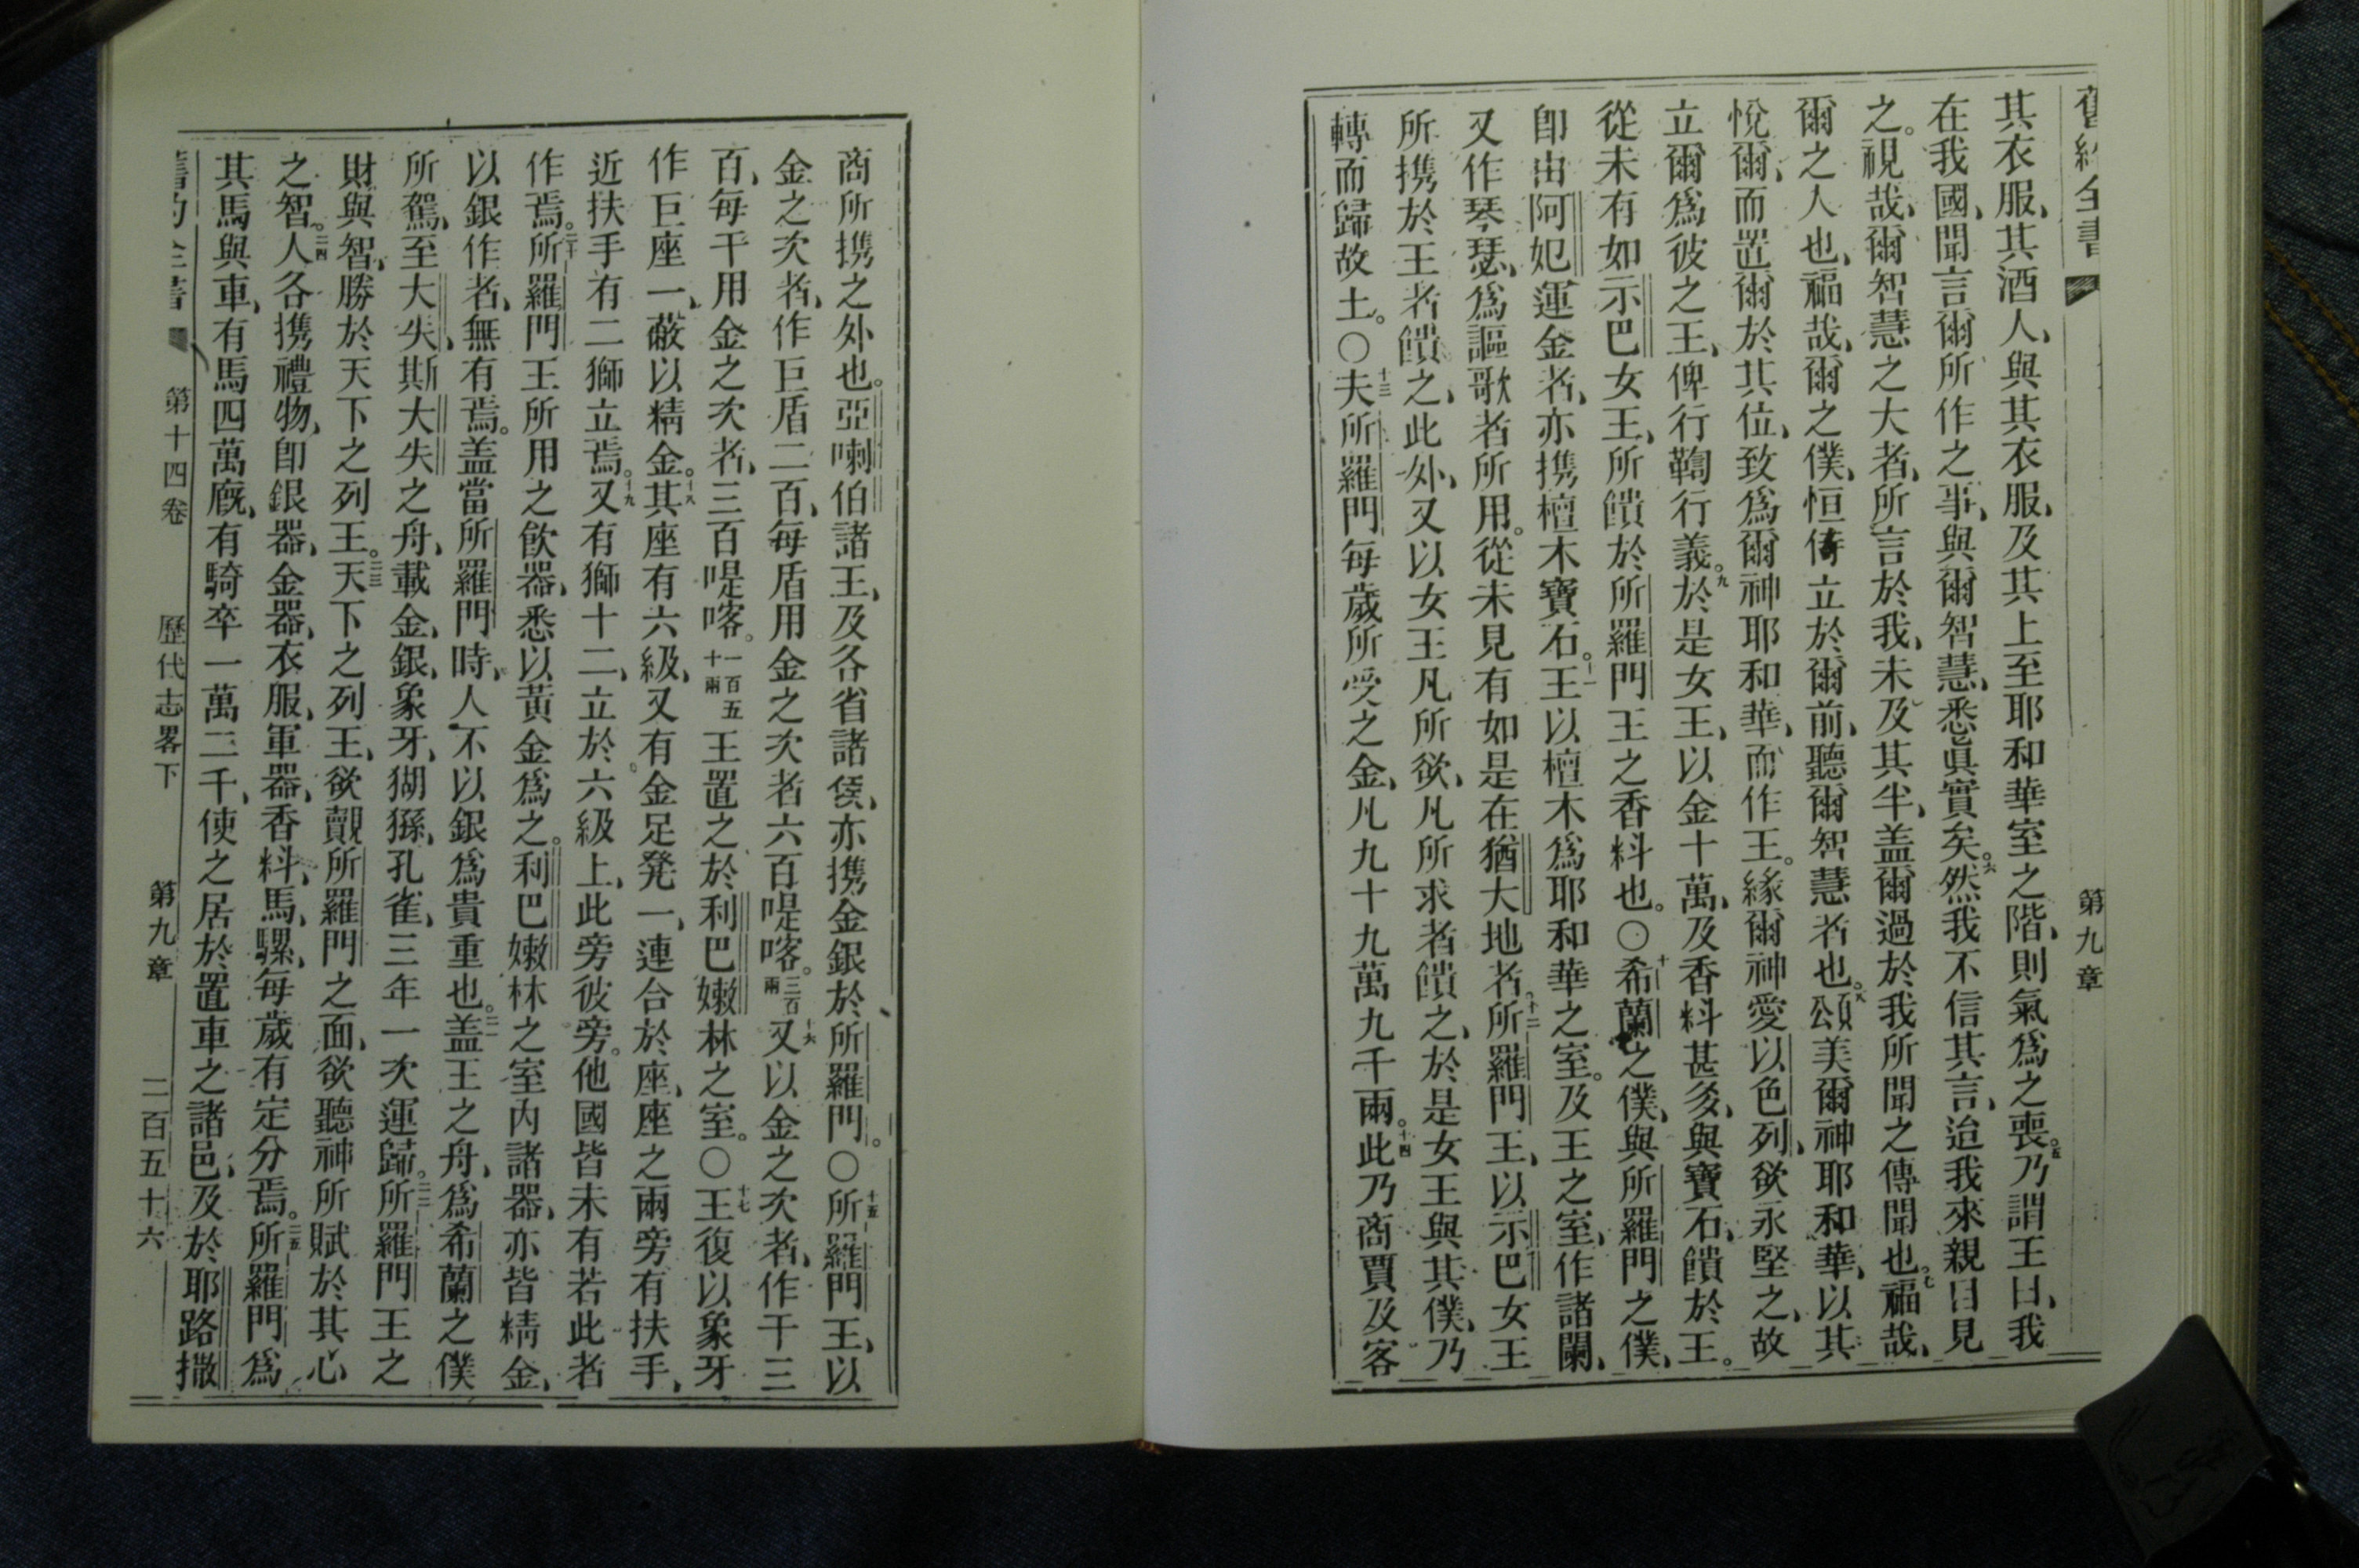 舊約全書 第九章
其衣服、其酒人、與其衣服、及其上至耶和華室之階、則氣爲之喪。五乃謂王曰、我
在我國、聞言爾所作之事、與爾智慧、悉眞實矣。六然我不信其言、迨我來親目見
之。視哉、爾智慧之大者、所言於我、未及其半、盖爾過於我所聞之傳聞也。七福哉、
爾之人也、福哉、爾之僕、恒侍立於爾前、聽爾智慧者也。八頌美爾神耶和華、以其
悅爾、而置爾於其位、致爲爾神耶和華、而作王。緣爾神愛以色列、欲永堅之、故
立爾爲彼之王、俾行鞫行義。九於是女王、以金十萬、及香料甚多、與寶石、饋於王。
從未有如示巴女王、所饋於所羅門王之香料也。〇十希蘭之僕、與所羅門之僕、
卽由阿妃運金者、亦携檀木寶石。十一王以檀木爲耶和華之室。及王之室、作諸闌、
又作琴瑟、爲謳歌者所用。從未見有如是在猶大地者。十二所羅門王、以示巴女王
所携於王者饋之、此外、又以女王凡所欲、凡所求者饋之、於是女王與其僕、乃
轉而歸故土。〇十三夫所羅門每歲所受之金、凡九十九萬九千兩。十四此乃商賈及客
商所携之外也。亞喇伯諸王、及各省諸侯、亦携金銀於所羅門。〇十五所羅門王、以
金之次者、作巨盾二百、每盾用金之次者六百喼喀。三百兩十六又以金之次者、作干三
百、每干用金之次者、三百喼喀。一百五十兩王置之於利巴嫩林之室。〇十七王復以象牙
作巨座一、蔽以精金。十八其座有六級、又有金足凳一、連合於座、座之兩旁有扶手、
近扶手有二獅立焉。十九又有獅十二、立於六級上、此旁彼旁。他國皆未有若此者
作焉。二十所羅門王所用之飲器、悉以黃金爲之。利巴嫩林之室內諸器、亦皆精金、
以銀作者、無有焉。盖當所羅門時、人不以銀爲貴重也。二一盖王之舟、爲希蘭之僕
所駕、至大失、斯大失之舟、載金、銀、象牙、猢猻、孔雀、三年一次運歸。二二所羅門王之
財與智、勝於天下之列王。二三天下之列王、欲覿所羅門之面、欲聽神所賦於其心
之智。二四人各携禮物、卽銀器、金器、衣服、軍器、香料、馬、騾、每歲有定分焉。二五所羅門爲
其馬與車、有馬四萬廐、有騎卒一萬二千、使之居於置車之諸邑、及於耶路撒
舊約全書 第十四卷 歷代志畧下 第九章 二百五十六